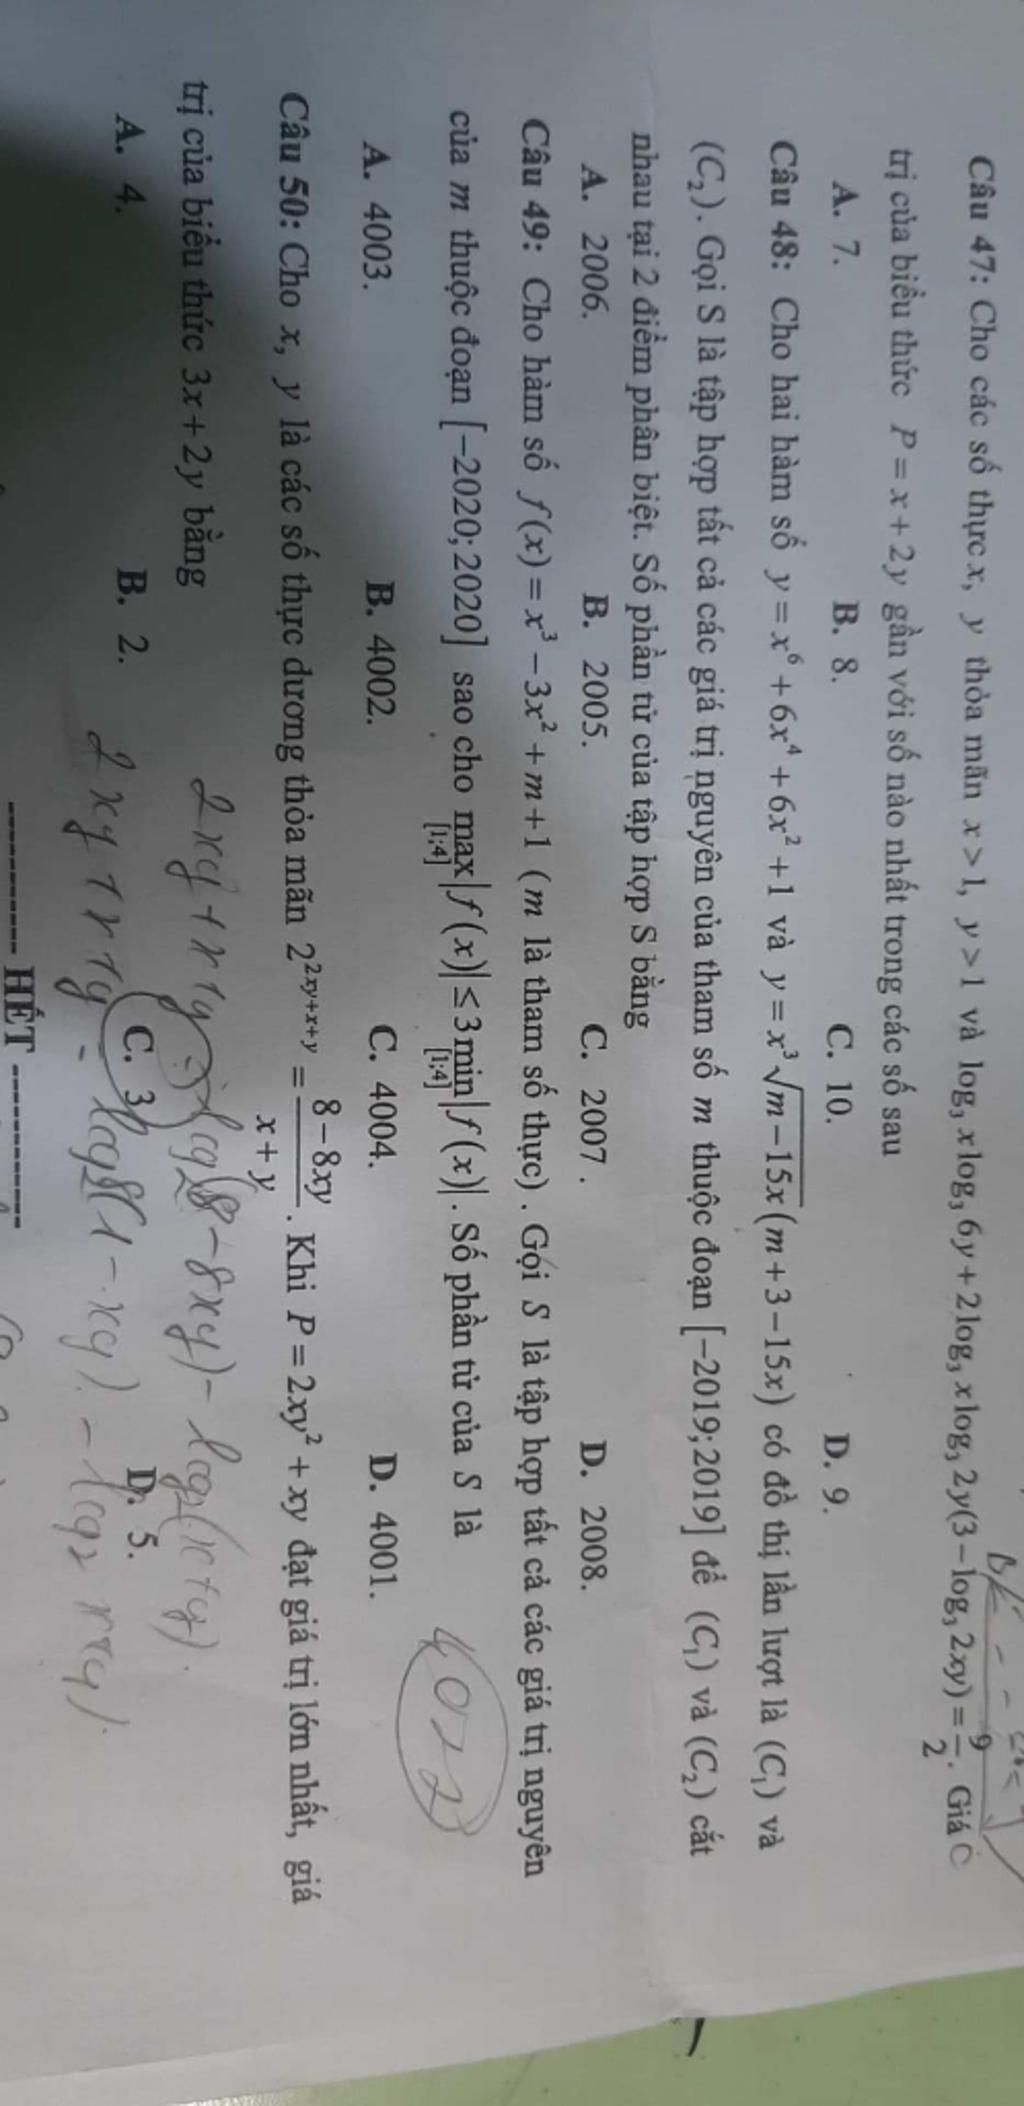 Câu 47: Cho các số thực x, y thỏa mãn x > 1, y > 1 và log₃ x log₃ 6y + 2 log₃ x log₃ 2y(3 − log₃ 2xy) = 9/2. Giá
trị của biểu thức P = x + 2y gần với số nào nhất trong các số sau
A. 7. B. 8. C. 10. D. 9.
Câu 48: Cho hai hàm số y = x⁶ + 6x⁴ + 6x² + 1 và y = x³√(m − 15x)(m + 3 − 15x) có đồ thị lần lượt là (C₁) và
(C₂). Gọi S là tập hợp tất cả các giá trị nguyên của tham số m thuộc đoạn [−2019; 2019] để (C₁) và (C₂) cắt
nhau tại 2 điểm phân biệt. Số phần tử của tập hợp S bằng
A. 2006. B. 2005. C. 2007. D. 2008.
Câu 49: Cho hàm số f(x) = x³ − 3x² + m + 1 (m là tham số thực). Gọi S là tập hợp tất cả các giá trị nguyên
của m thuộc đoạn [−2020; 2020] sao cho max[1;4] |f(x)| ≤ 3 min[1;4] |f(x)|. Số phần tử của S là
A. 4003. B. 4002. C. 4004. D. 4001.
4072
Câu 50: Cho x, y là các số thực dương thỏa mãn 2^(2xy+x+y) = (8 − 8xy)/(x + y). Khi P = 2xy² + xy đạt giá trị lớn nhất, giá
trị của biểu thức 3x + 2y bằng
2xy + x + y = log₂(8 − 8xy) − log₂(x + y).
A. 4. B. 2. C. 3. D. 5.
2xy + x + y = log₂8(1 − xy) − log₂ x+y)
---------- HẾT ----------